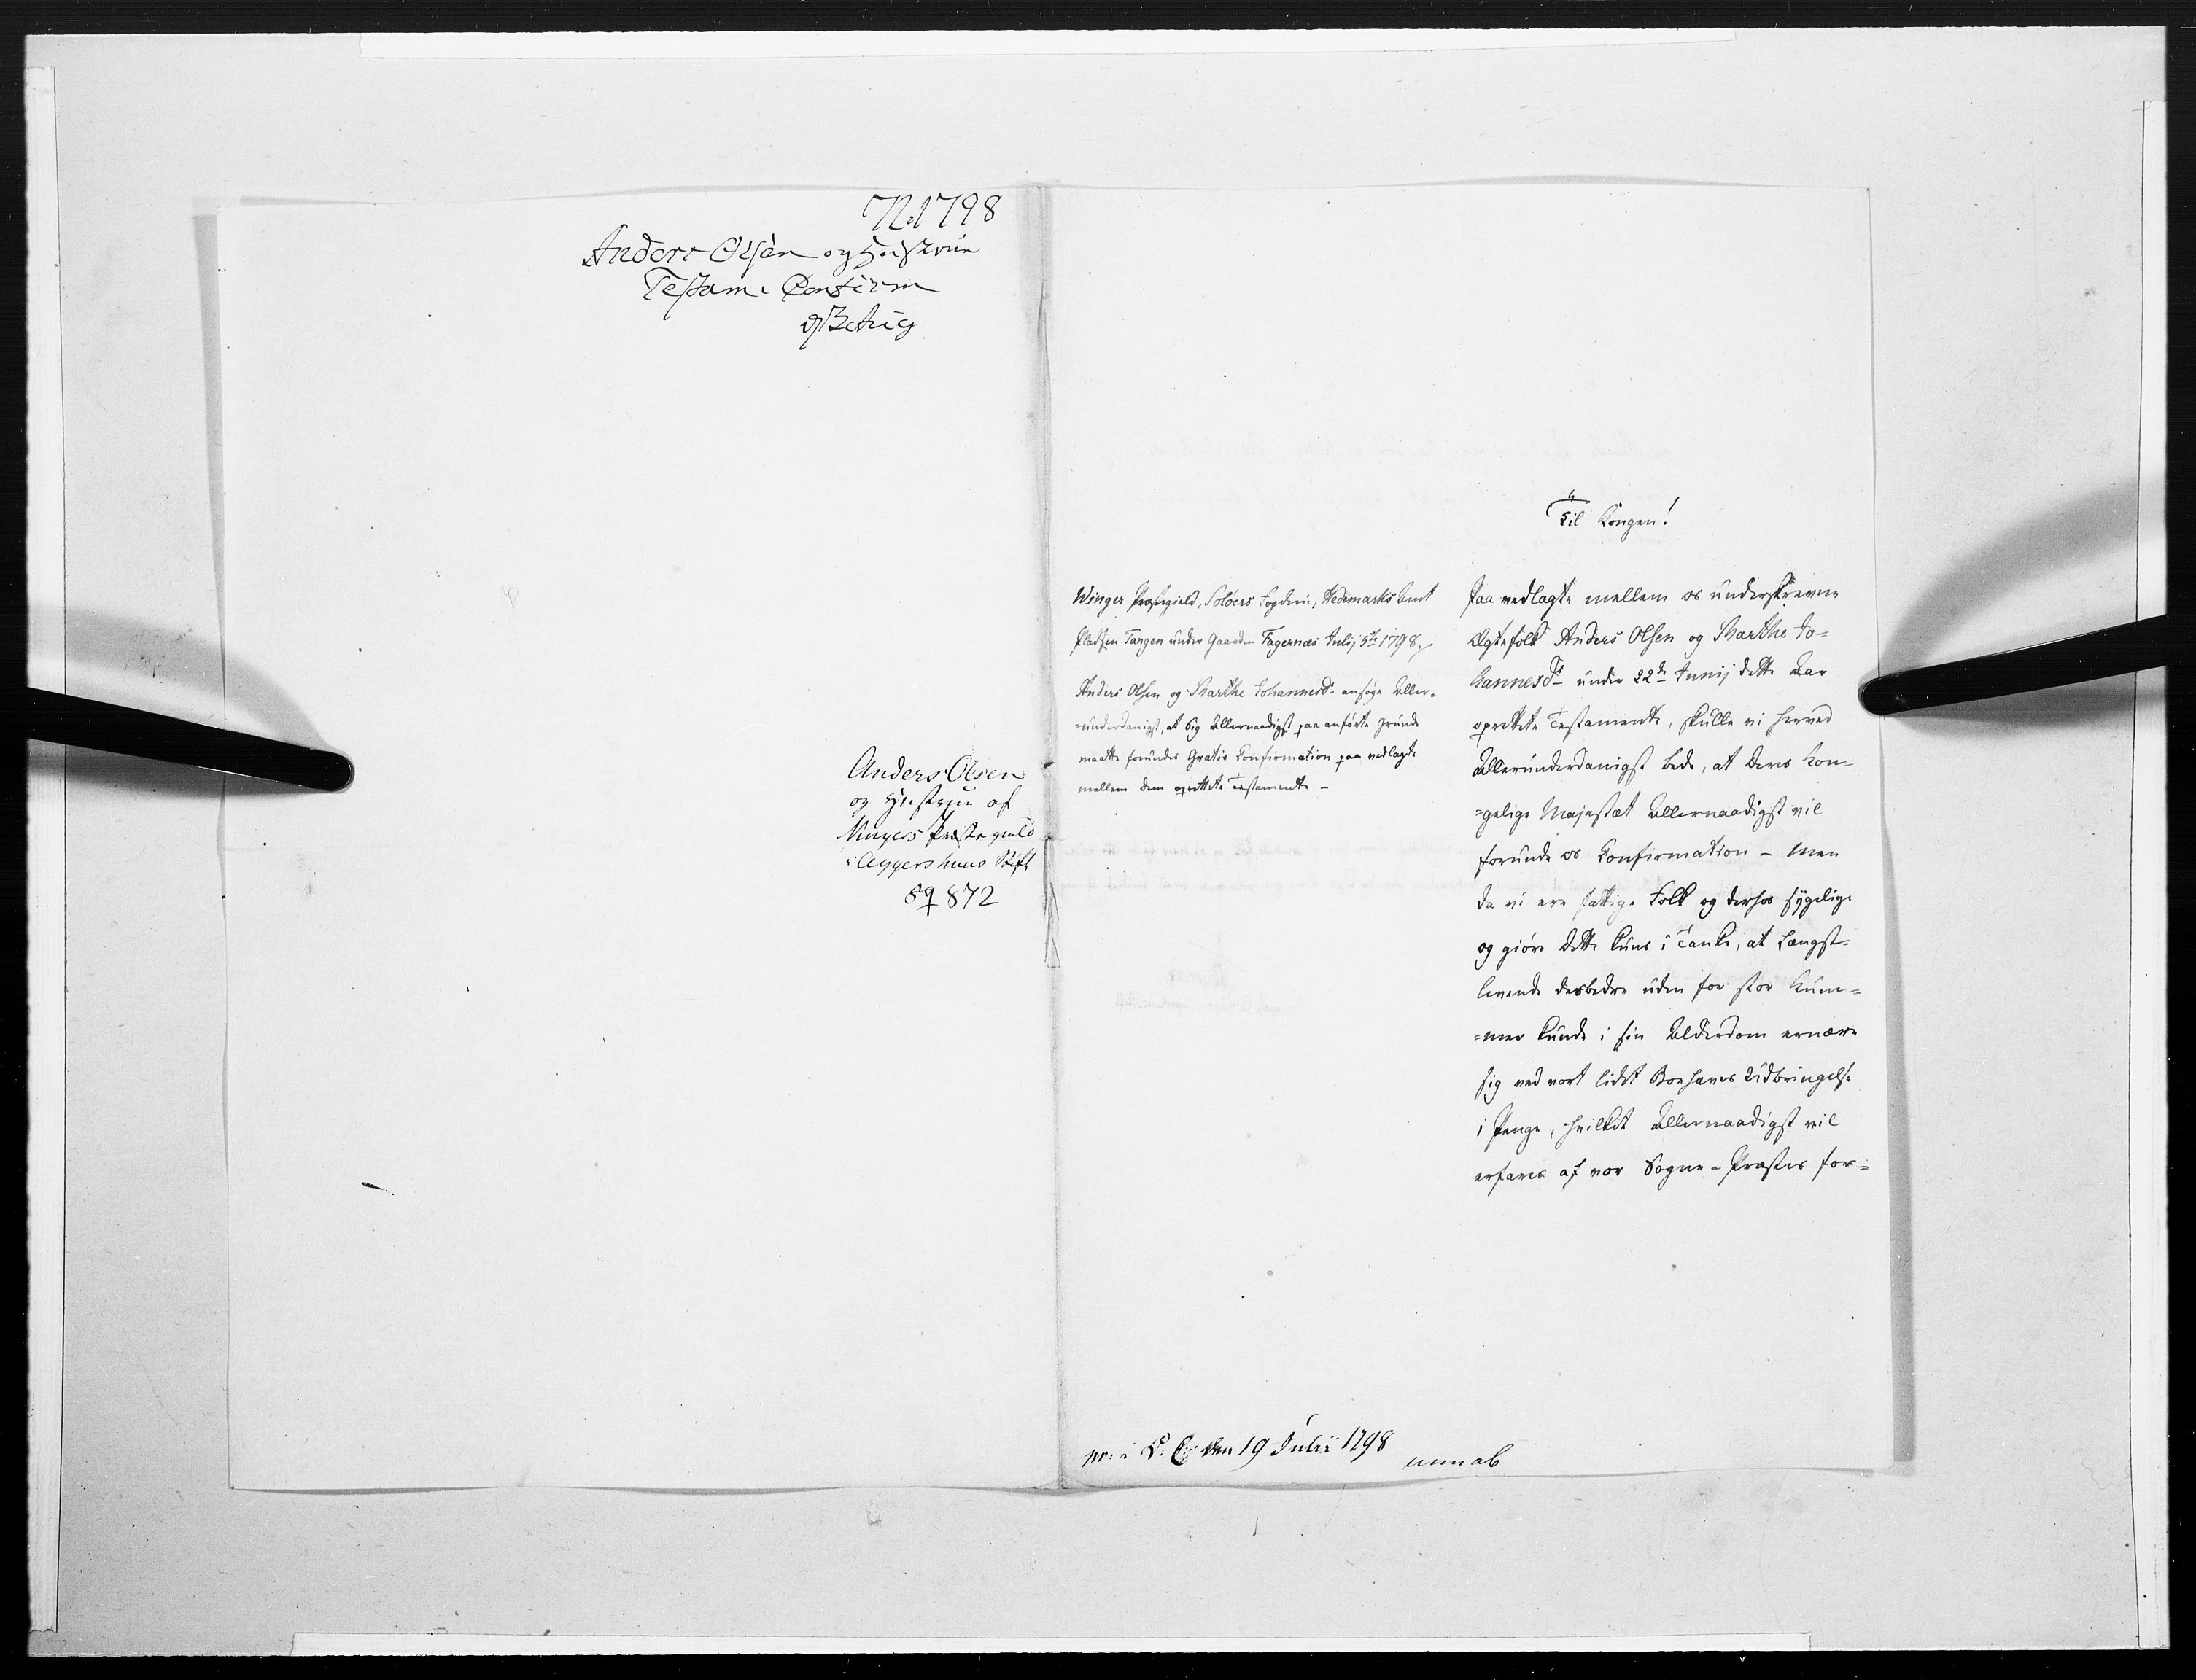 1798
Anders Olsen og Hustrue
Testam: Confirm
Anders Olsen
og Hustrue af
Vingers Præstegield
i Aggershuus Stift
872
Til Kongen!
Winger Præstegield, Soløers Fogderie, Hedemarks Amt
Pladsen Tangen under Gaarden Fagernæs Julij 5te 1798.
Anders Olsen og Marthe Johannesdr ansøge Aller-
-underdanigst, at Sig Allernaadigst paa anførte Grunde
maatte forundes Gratis Confirmation paa vedlagte
mellem dem oprettete Testamente -
Paa vedlagte mellem os underskrevne
Ægtefolk Anders Olsen og Marthe Jo=
hannesdr under 22de Junij dette Aar
oprettete Testamente, skulle vi herved
allerunderdanigst bede, at Deres Kon-
=gelige Majestæt Allernaadigst vil
forunde os Confirmation - Men
da vi ere fattige Folk og derhos sygelige
og giøre dette kuns i Tanke, at Længst=
levende desbedre uden for stor Kum=
=mer kunde i sin Alderdom ernære
sig ved vort lidet Boehaves Udbringelse
i Penge, hvilket Allernaadigst vil
erfares af vor Sogne-Præstes for=
pr: i D: C: den 19 Julii 1798